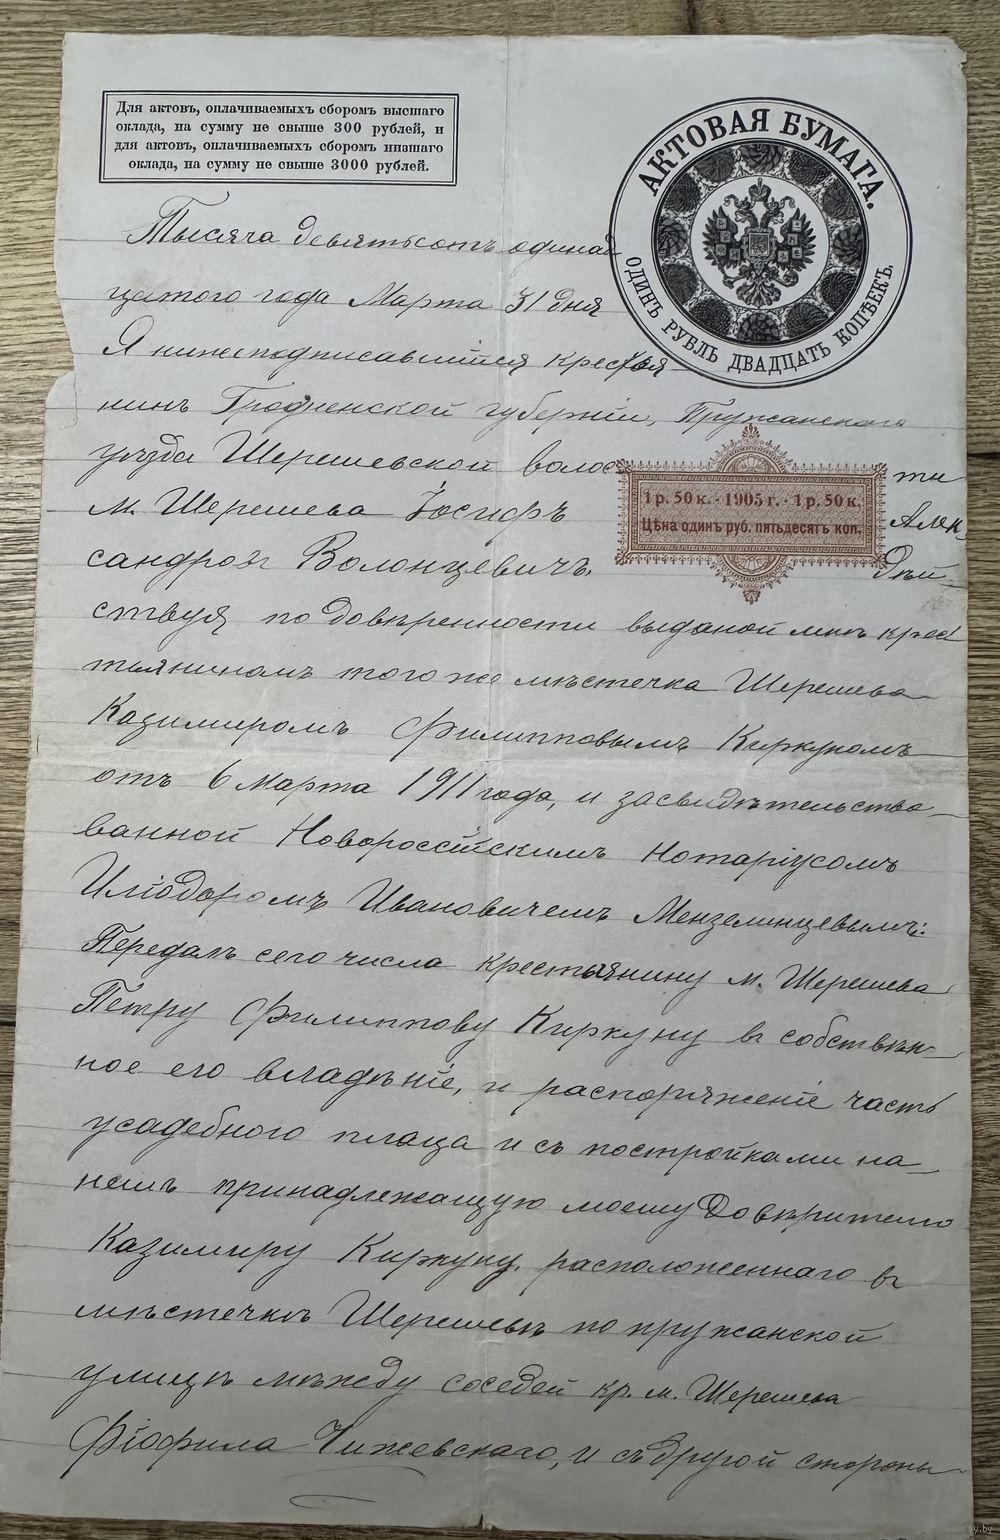 Для актовъ, оплачиваемыхъ сборомъ высшаго
оклада, на сумму не свыше 300 рублей, и
для актовъ, оплачиваемыхъ сборомъ низшаго
оклада, на сумму не свыше 3000 рублей.
АКТОВАЯ БУМАГА.
ОДИНЪ РУБЛЬ ДВАДЦАТЬ КОПѢЕКЪ.
Тысяча девятьсотъ одинад
цатого года Марта 31 дня
Я нижеподписавшійся крестья
нинъ Гродненской губерніи, Пружанскаго
уѣзда Шерешевской волос ти
1 р. 50 к. - 1905 г. - 1 р. 50 к.
Цѣна одинъ руб. пятьдесятъ коп.
м. Шерешева Іосифъ Алек-
сандровъ Волонцевичъ, Дѣй-
ствуя по довѣренности выданой мнѣ крес
тьяниномъ того же мѣстечка Шерешева
Казимиромъ Филипповымъ Киркуномъ
отъ 6 Марта 1911 года, и засвидѣтельство-
ванной Новороссійскимъ Нотаріусомъ
Иліодоромъ Ивановичемъ Мензелинцевымъ:
Передалъ сего числа крестьянину м. Шерешева
Петру Филиппову Киркуну въ собствѣн-
ное его владѣніе, и распоряженіе часть
усадебного плаца и съ постройками на-
немъ принадлежащую моему Довѣрителю
Казимиру Киркуну, расположеннаго въ
мѣстечкѣ Шерешевѣ по пружанской
улицѣ между соседей кр. м. Шерешева
Фіофила Чижевскаго, и съ другой стороны